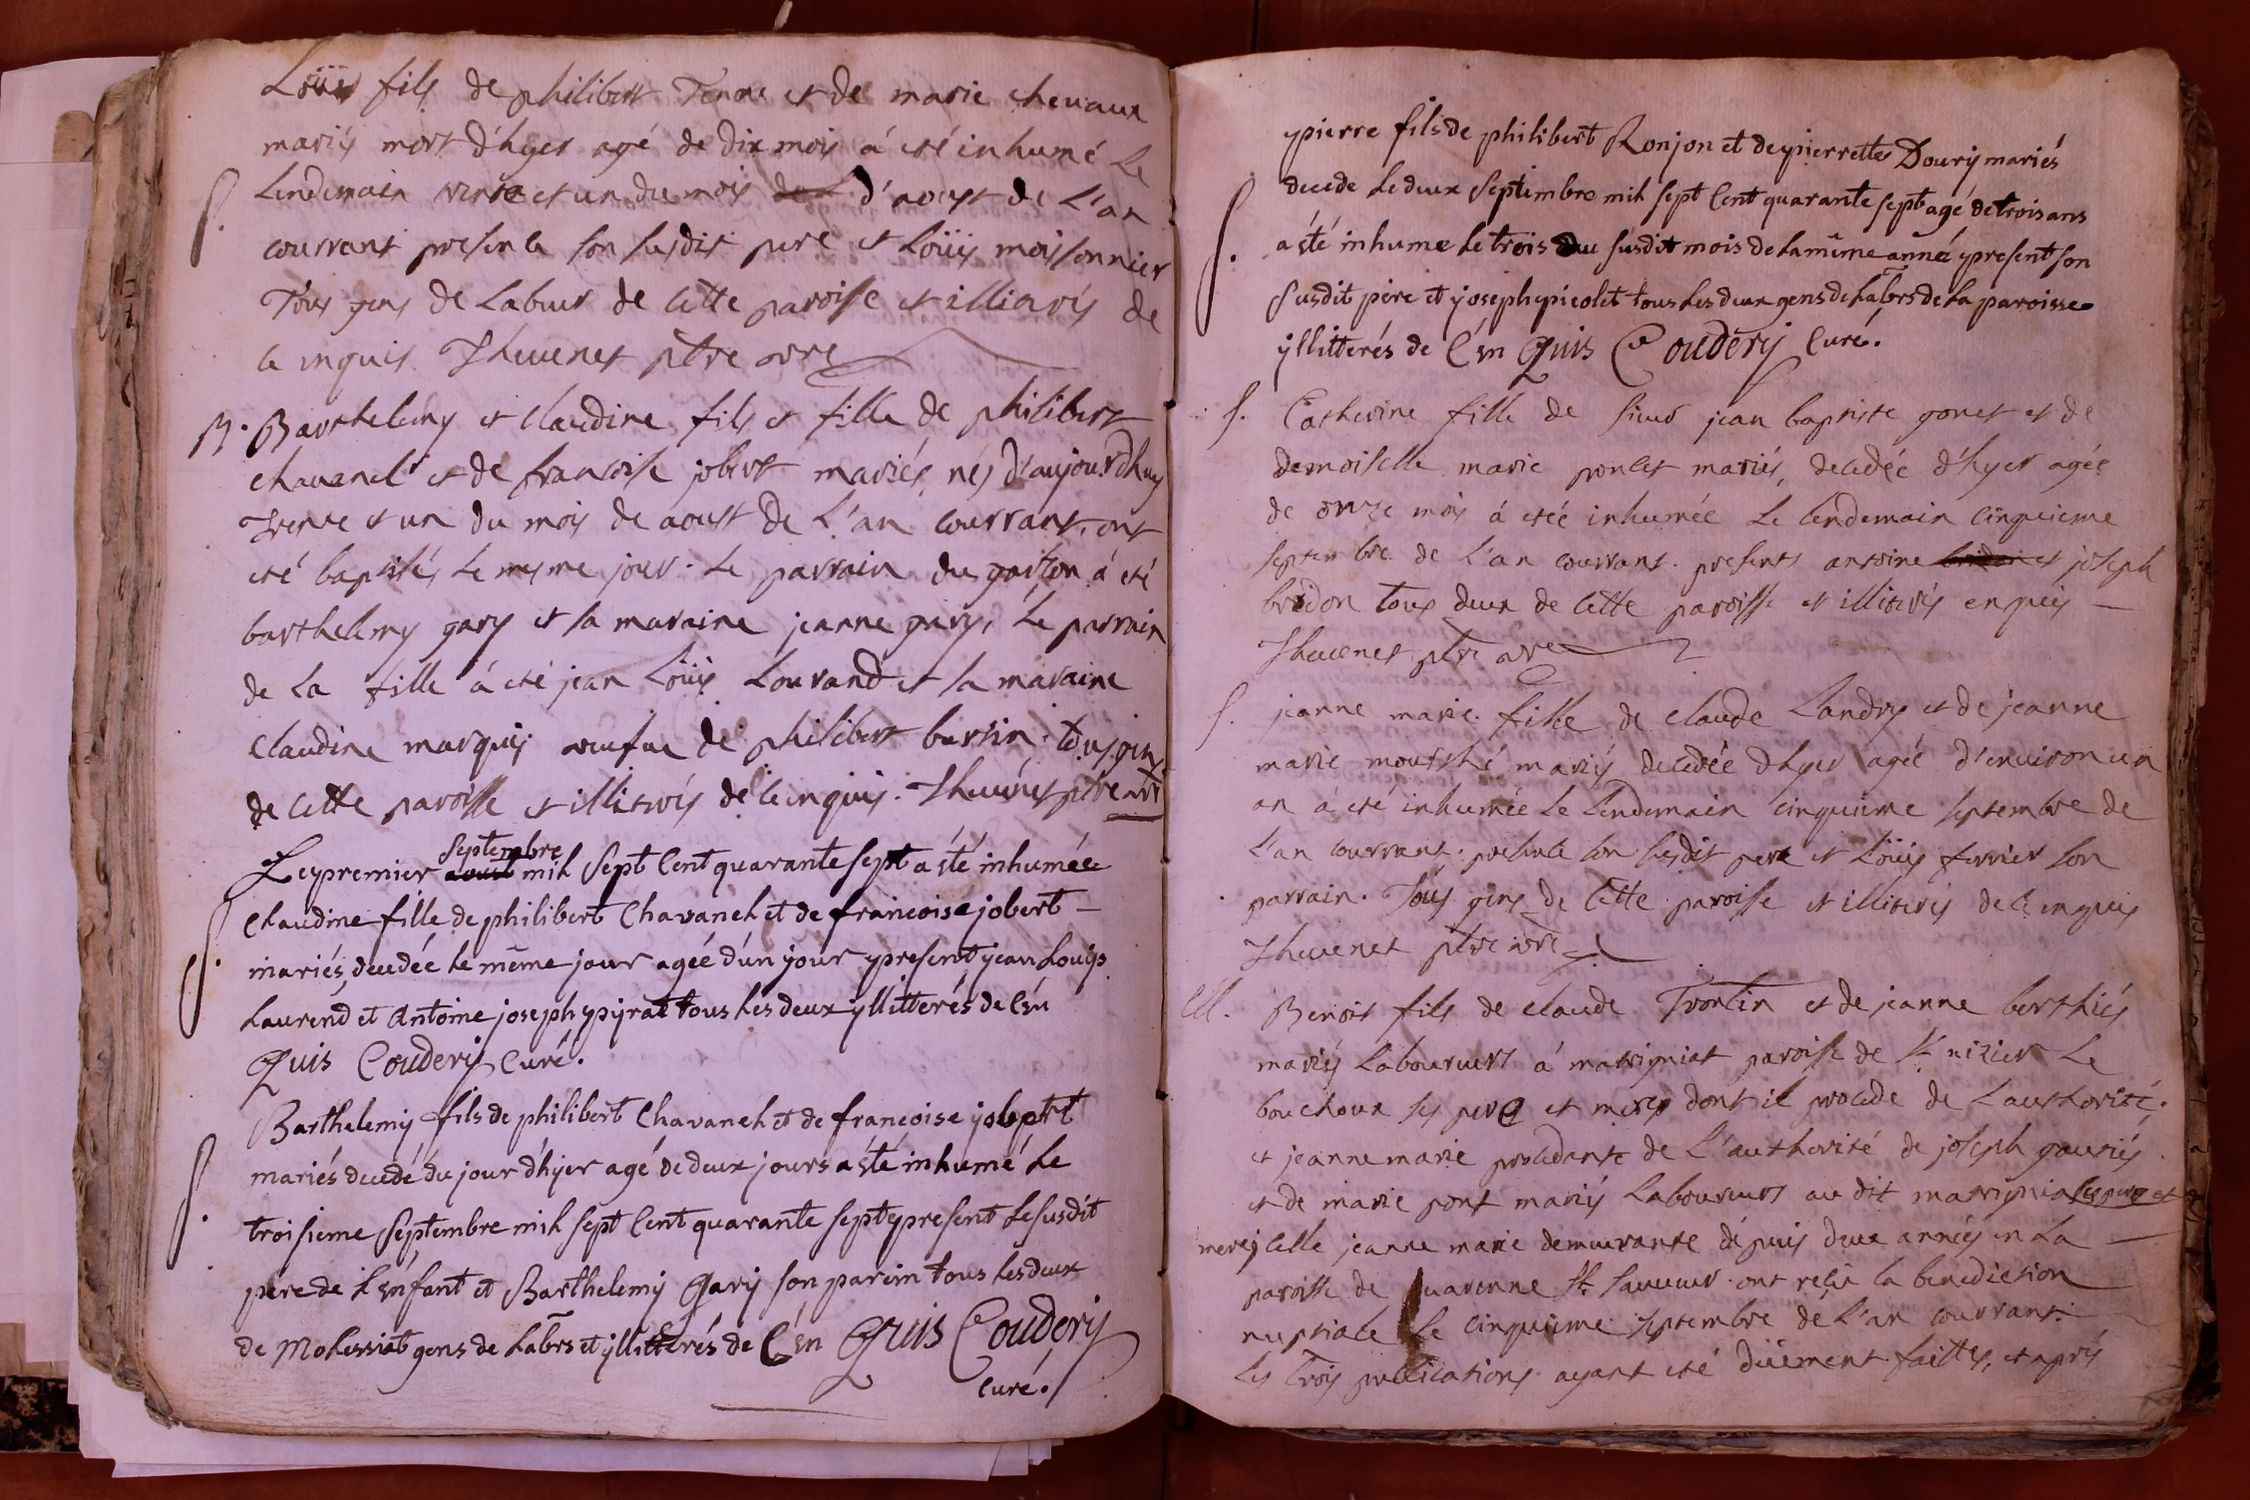 Loüis fils de philibert Tenne et de marie chevaux
mariés mort d'hyer agé de dix mois á eté inhumé Le
Lendemain trente et un du mois d'aoust de L'an
courrant presents son susdit pere et Loüis moissonnier
Tous gens de Labeur de Cette paroisse et illiterés de
ce inquis Thevenet ptre vre
S.
B. Barthelemy et Claudine fils et fille de philibert
chavanel et de francoise jobert mariés, nés d'aujourdhuy
Trente et un du mois de aoust de L'an courrant, ont
eté baptisés Le mesme jour. Le parrain du garson á eté
barthelemy gary et sa maraine jeanne gary, Le parrain
de La fille á eté jean Loüis Lourand et sa maraine
Claudine marquis veufue de philibert bursin. tous gens
de Cette paroisse et illiterés de ce inquis. Thevenet ptre vre
Septembre
Le ypremier aoust mil Sept Cent quarante sept a été inhumée
Claudine fille de philibert Chavanel et de francoise jobert —
mariés, decedée le même jour agée d'un jour ypresent yean Louÿs
Laurend et Antoine joseph ypyrat tous les deux yllitterés de Cën
Quis Coudery Curé.
S.
Barthelemy fils de philibert Chavanel et de francoise yobert
mariés decedé du jour d'hÿer agé de deux jours a été inhumé Le
troisieme Septembre mil sept Cent quarante sept ypresent Le susdit
pere de L'enfant et Barthelemy Gary son parein tous les deux
de Molessiat gens de Labrs et yllitterés de Cën Quis Coudery
Curé.
S.
ypierre fils de philibert Ronjon et de ypierrette Doury mariés
decede Le deux Septimbre mil sept Cent quarante sept agé de trois ans
a été inhume Le trois du susdit mois de La même anné ypresent son
Susdit père et yoseph ypicolet tous Les deux gens de Labrs de La paroisse
yllitterés de Cën Quis Coudery Curé.
S.
S. Catherine fille de sieur jean baptiste gonet et de
demoiselle marie poncet mariés, decedée d'hyer agée
de onze mois á eteé inhumée Le Lendemain Cinquieme
septembre de L'an courrant. presents antoine et joseph
bridon tous deux de Cette paroisse et illiterés enquis —
Thevenet ptre vre
S. jeanne marie fille de claude Landry et de jeanne
marie mariés decedée d'hyer agée d'environ un
an á eté inhumée Le Lendemain cinquieme septembre de
L'an courrant. presents son susdit pere et Loüis ferrier son
parrain. Tous gens de Cette paroisse et illiterés de Ce enquis
Thevenet ptre vre
M. Benoit fils de claude Trontin et de jeanne berthiés
mariés Laboureurs á matrigniat paroisse de St nizier Le
bouchoux ses pere et mere dont il procede de Lauthorité,
et jeanne marie procedante de L'authorité de joseph gauriés
et de marie pont mariés Laboureurs au dit matrigniat ses pere et
mere, Celle jeanne marie demeurante depuis deux années en La —
paroisse de varenne St sauveur. ont reçu la benediction
nuptiale Le cinquieme septembre de L'an courrant.
Les Trois publications ayant eté düement faittes, et aprés